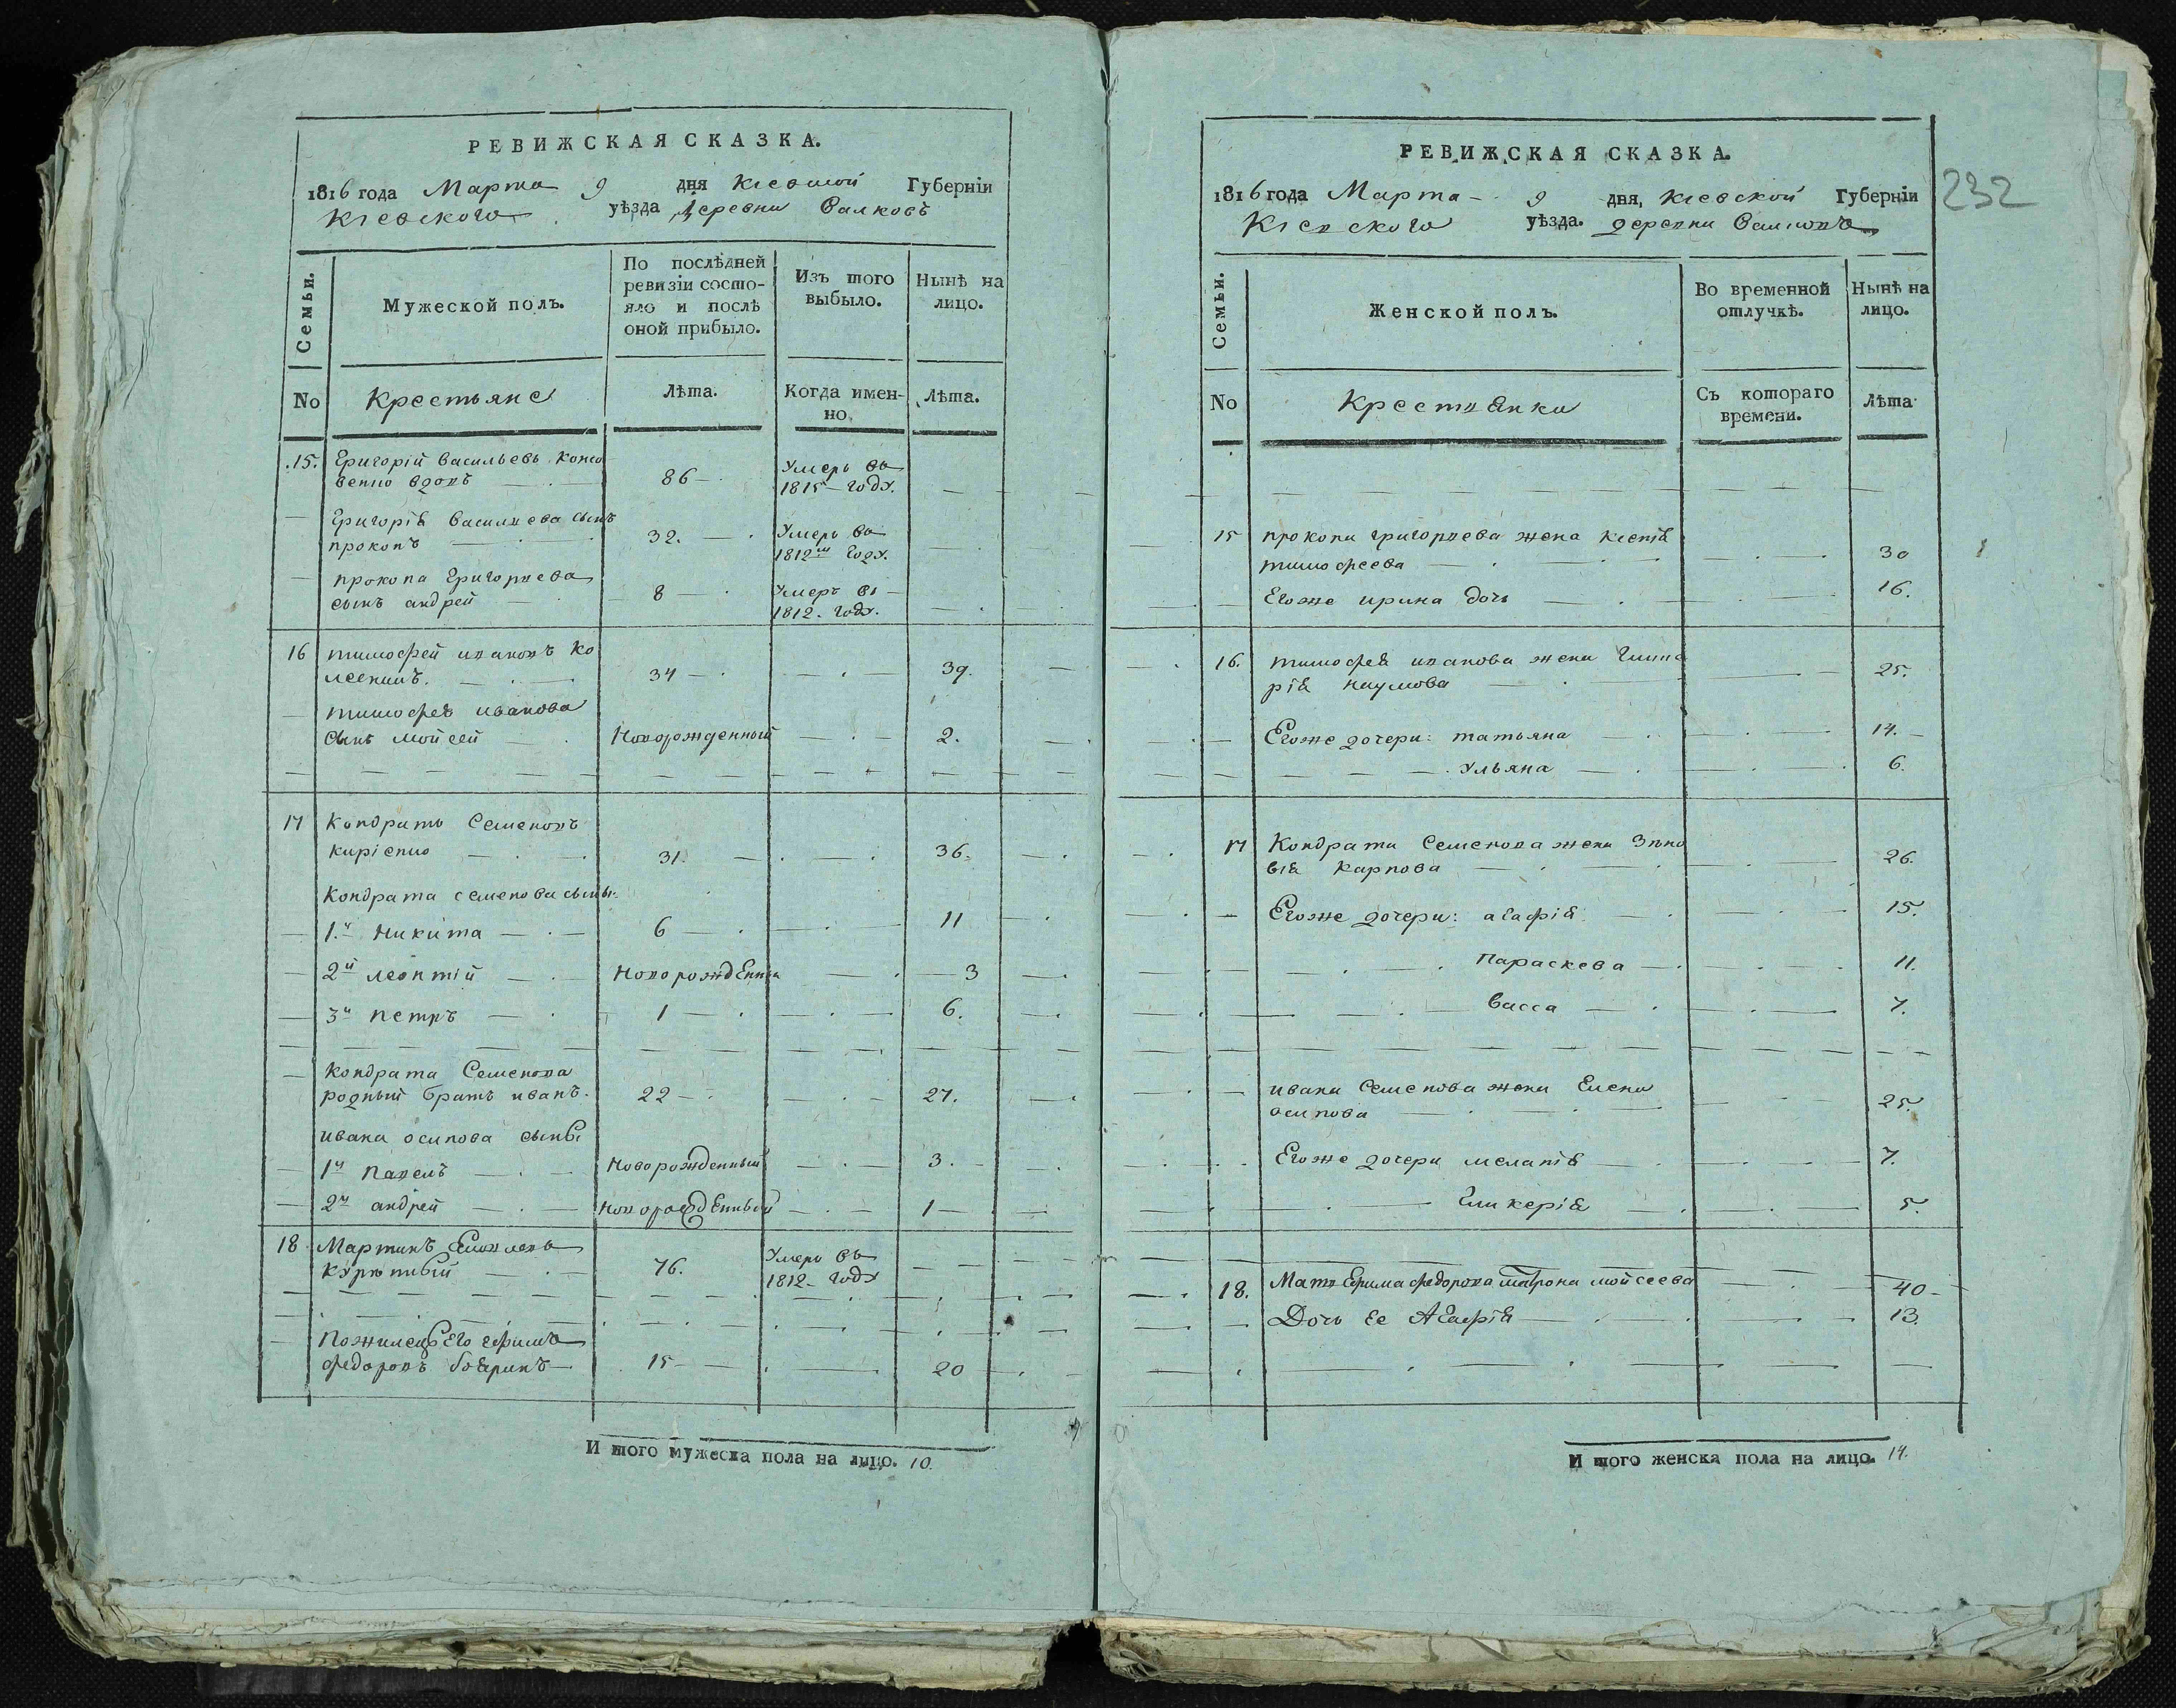 РЕВИЖСКАЯ СКАЗКА.
1816 года Марта 9 дня Кіевской Губерніи
Кіевского уѣзда деревни Валковъ
Семьи.
Мужеской полъ.
По послѣдней
ревизіи состо-
яло и послѣ
оной прибыло.
Изъ того
выбыло.
Нынѣ на
лицо.
No
Крестьяне
Лѣта.
Когда имен-
но
Лѣта.
15. Григорій Васильевъ
вдовъ 86
Умеръ въ
1815 году.
Григорія Васильева сынъ
прокопъ 32.
Умеръ въ
1812м году.
прокопа Григорьева
сынъ андрей 8
Умеръ въ
1812. году.
16 тимофей ивановъ ко
34 39.
тимофея иванова
сынъ мойсей Новорожденный 2.
17 Кондратъ Семеновъ
киріенко 31. 36.
Кондрата семенова сыны
1.й Никита 6 11
2й леонтій Новорожденны 3
3й петръ 1 6.
Кондрата Семенова
родный братъ иванъ. 22 27.
ивана осипова сыны
1й павелъ Новорожденный 3.
2й андрей Новорожденный 1
18 Мартинъ
76.
Умеръ въ
1812 году
Пожилецъ Его ефимъ
федоровъ бояринъ 15 20
И того мужеска пола на лицо. 10.
РЕВИЖСКАЯ СКАЗКА.
1816 года Марта 9 дня, Кіевской Губерніи
Кіевского уѣзда. деревни Валковъ
232
Семьи.
Женской полъ.
Во временной
отлучкѣ.
Нынѣ на
лицо.
No
Крестьянки
Съ котораго
времени.
Лѣта
15 прокопа григорьева жена ксенія
тимофеева 30
Егоже ирина дочь 16.
16. тимофея иванова жена Глике
рія наумова 25.
Егоже дочери: татьяна 14.
Ульяна 6.
17 Кондрата Семенова жена Зено
вія Карпова 26.
Егоже дочери: агафія 15.
Параскева 11.
васса 7.
ивана Семенова жена Елена
осипова 25.
Егоже дочери меланія 7.
Гликерія 5.
18. Мать Ефима федорова матрона мойсеева 40
Дочь Ее Агафія 13.
И того женска пола на лицо. 14.